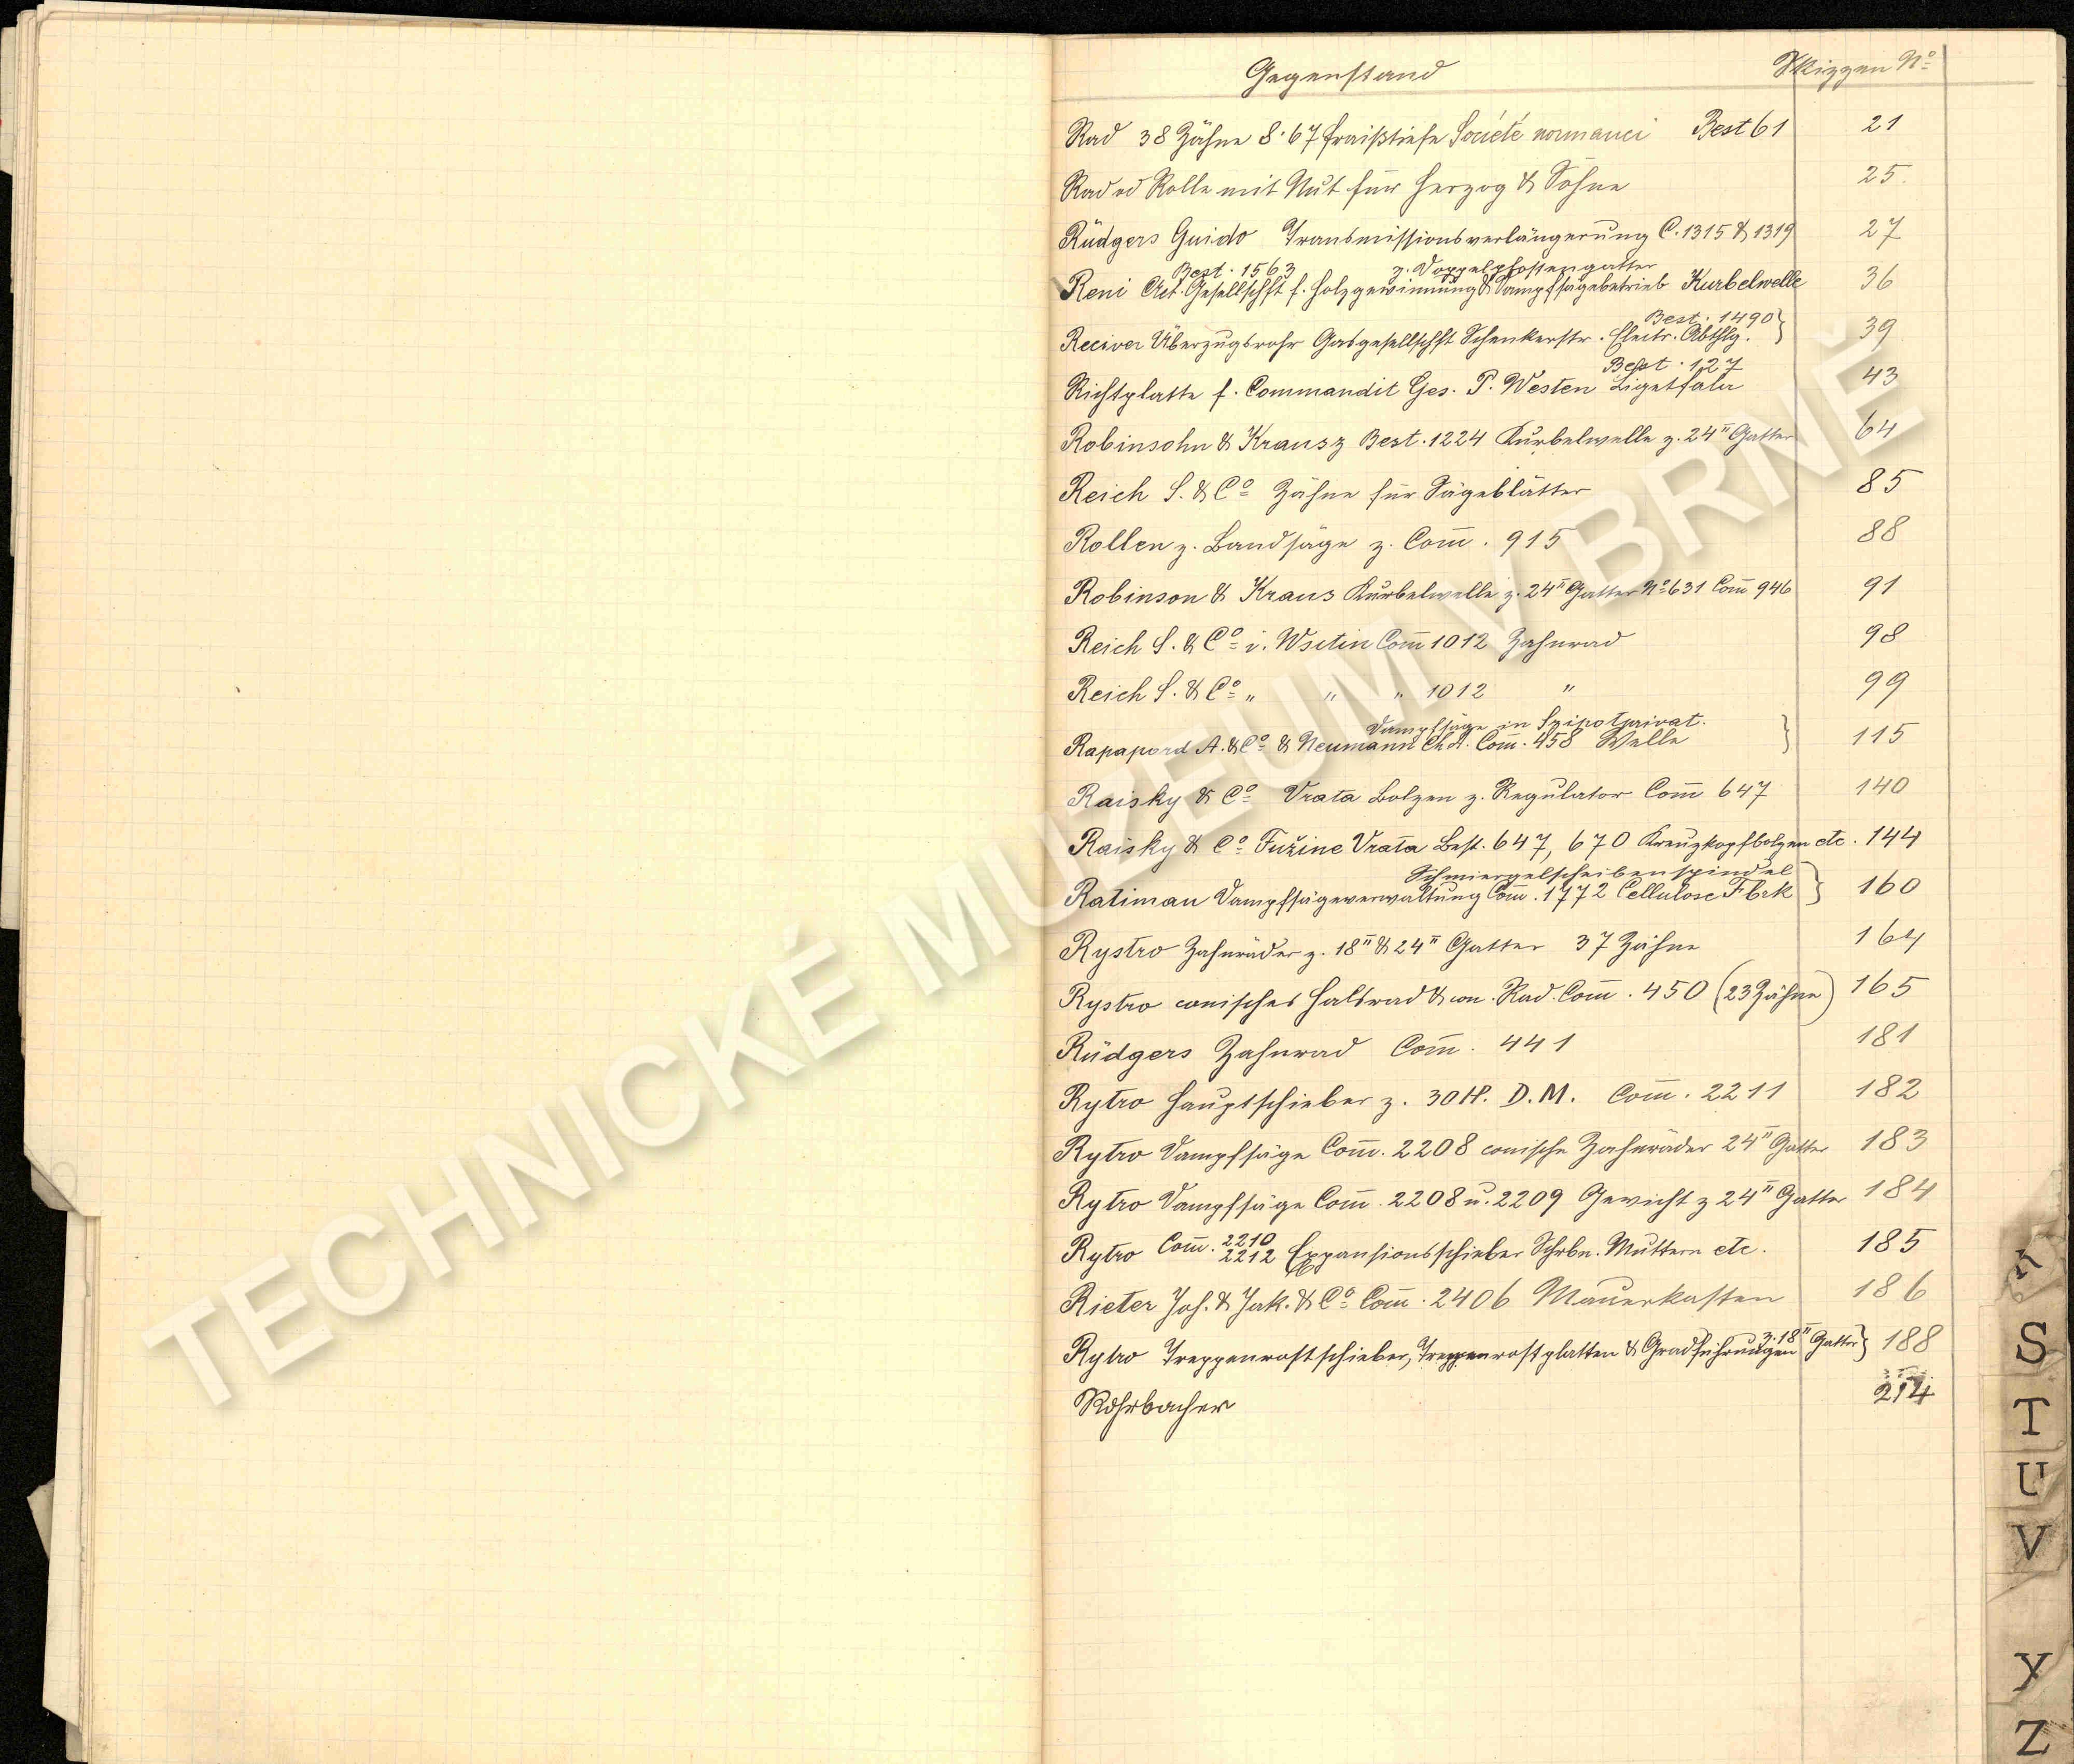 Gegenstand Skizzen No
Rad 38 Zähne 8·67 Fraißtiefe Société Best 61 21
Rad od Rolle mit Nut für Herzog & Söhne 25.
Rüdgers Guido Transmissionsverlängerung C. 1315 & 1319 27
Best. 1563 z. Doppelpfostengatter
Reni Act. Gesellschft f. Holzgewinnung & Dampfsägebetrieb Kurbelwelle 36
Best. 1490 }
Reciver Überzugsrohr Gasgesellschft Schenkerstr. Electr. Abthlg. 39
Best. 127
Richtplatte f. Commandit Ges. P. Westen Ligetfalu 43
Robinsohn & Krausz Best. 1224 Kurbelwelle z. 24" Gatter 64
Reich S. & Co Zähne für Sägeblätter 85
Rollen z. Bandsäge z. Com̄. 915 88
Robinson & Kraus Kurbelwelle z. 24" Gatter No 631 Com̄ 946 91
Reich S. & Co i. Wsetin Com̄ 1012 Zahnrad 98
Reich S. & Co " " " 1012 " 99
Dampfsäge in
Rapapord A. & Co & Neumann Ch. A. Com̄. 458 Welle } 115
Raisky & Co Vrata Bolzen z. Regulator Com̄ 647 140
Raisky & Co Fužine Vrata Best. 647, 670 Kreuzkopfbolzen etc. 144
Schmiergelscheibenspindel
Ratiman Dampfsägeverwaltung Com̄. 1772 Cellulose Fbrk } 160
Rystro Zahnräder z. 18" & 24" Gatter 37 Zähne 164
Rystro conisches Halsrad & con. Rad. Com̄. 450 (23 Zähne) 165
Rüdgers Zahnrad Com̄. 441 181
Rytro Hauptschieber z. 30 H. D. M. Com̄. 2211 182
Rytro Dampfsäge Com̄. 2208 conische Zahnräder 24" Gatter 183
Rytro Dampfsäge Com̄. 2208 u. 2209 Gewicht z 24" Gatter 184
Rytro Com̄. 2210 2212 Expansionsschieber Schrbn. Muttern etc. 185
Rieter Joh. & Jak. & Co Com̄. 2406 Mauerkasten 186
Rytro Treppenrostschieber, Treppenrostplatten & Gradführungen z. 18" Gatter } 188
Rohrbacher 214
S
T
U
V
Y
Z
TECHNICKÉ MUZEUM V BRNĚ